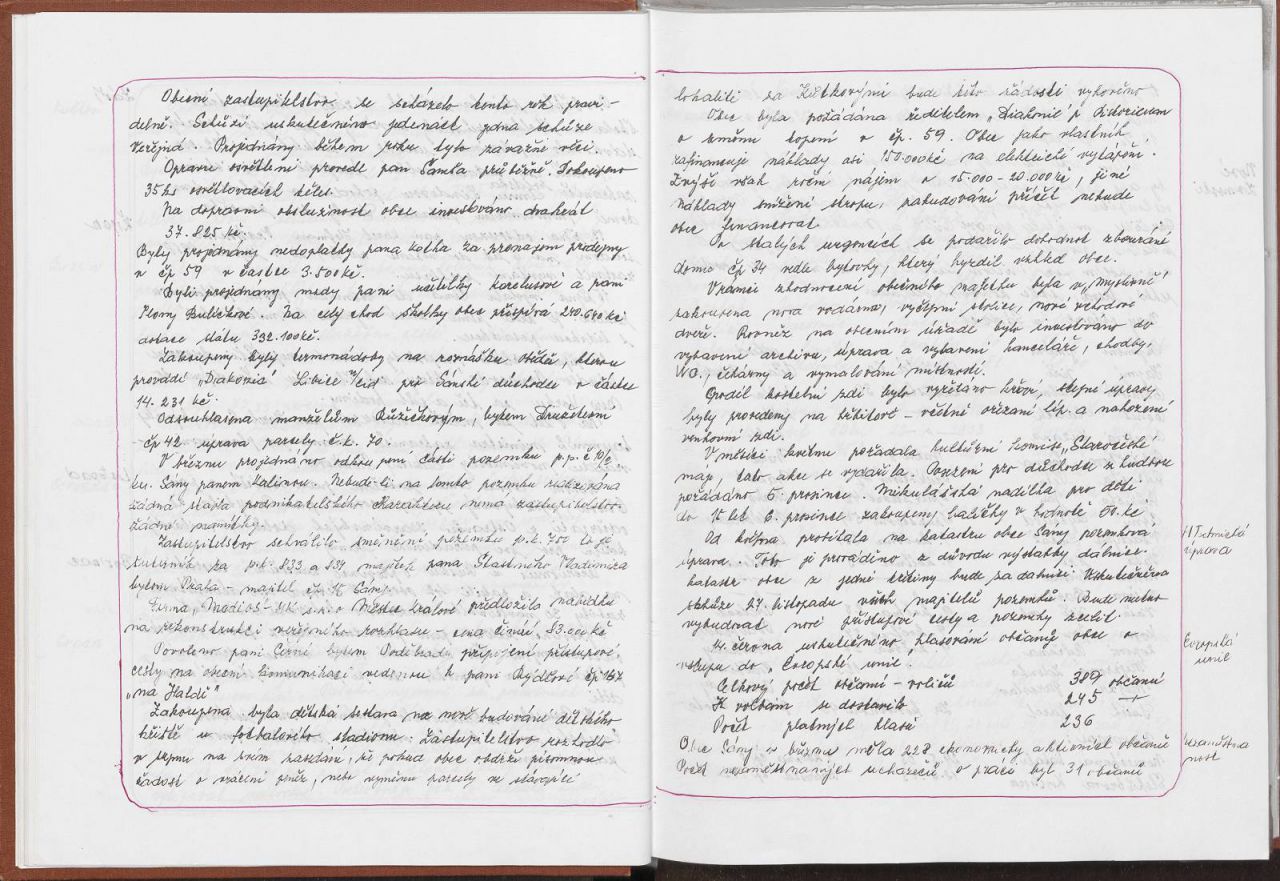 Obecní zastupitelstvo se scházelo tento rok pravi-
delně. Schůzí uskutečněno jedenáct jedna schůze
veřejná. Projednány během roku tyto závažné věci.
Opravu osvětlení provede pan Šamša průběžně. Dokoupeno
35 ks osvětlovacích těles.
Na dopravní obslužnost obce investováno dvakrát
37.825 kč.
Byly projednány nedoplatky pana Kotka za pronájem prodejny
v čp 59 v částce 3.500 kč.
Byli projednány mzdy paní učitelky a paní
Ilony Buličkové. Na celý chod školky obec přispívá 240.640 kč
dotace státu 392.100 kč.
Zakoupeny byly termonádoby na roznášku obědů, kterou
provádí "Diakonia" Libice n/Cid pro Sánské důchodce v částce
14.231 kč.
Odsouhlasena manželům Růžičkovým, bytem Družstevní
čp 42 úprava parcely č.k. 70.
V březnu projednáno odkoupení části pozemku p.p. č 10/2
ku. Sány panem Kalinou. Nebude-li na tomto pozemku realizována
žádná stavba podnikatelského charakteru nemá zastupitelstvo
žádné námitky.
Zastupitelstvo schválilo směnění pozemku p.k. 700 to je
za p.k. 833 a 834 majitek pana Šťastného Vladimíra
bytem Praha - majitel čp 15 Sány.
Firma, Modios-MK s.r.o Městec Králové předložila nabídku
na rekonstrukci veřejného rozhlasu - cena činí 83.000 kč
Povoleno paní Černé bytem Poděbrady připojení přístupové
cesty na obecní komunikaci vedenou k paní Rydlové čp 167
"na Haldě"
Zakoupena byla dětská sestava na nově budování dětského
hřiště u fotbalového stadionu. Zastupitelstvo rozhodlo
v srpnu na svém zasedání, že pokud obec obdrží písemnou
žádost o vrácení peněz, nebo výměnu parcely ve stávající
lokalitě za Kůtkovými bude této žádosti vyhověno
Obec byla požádána ředitelem "Diakonie p Kistoričem
o změnu topení v čp. 59. Obec jako vlastník
zafinancuje náklady asi 150.000 kč na elektrické vytápění.
Zvýší však roční nájem o 15.000-20.000 kč, jiné
náklady snížení stropu, zabudování příček nebude
obec financovat
Po stálých urgencích se podařilo dohodnout zbourání
domu čp 34 vedle bytovky, který hyzdil vzhled obce.
V rámci zhodnocení obecního majetku byla v "Myslivně"
zakoupena nova vodárna, výčepní stolice, nové vchodové
dveře. Rovněž na obecním úřadě bylo investováno do
vybavení archivu, úprava a vybavení kanceláře, chodby,
WC., čekárny a vymalování místností.
Podél kostelní zdi bylo vyřezáno křoví, stejné úpravy
byly provedeny na hřbitově - včetně ořezání líp a nahození
venkovní zdi.
V měsíci květnu pořádala kulturní komise "Staročeské
máje, tato akce se vydařila. Posezení pro důchodce s hudbou
pořádáno 5. prosince. Mikulášská nadílka pro děti
do 15 let 6. prosince zakoupeny balíčky v hodnotě 50.kč
Od května probíhala na katastru obce Sány pozemková
úprava. Toto je prováděno z důvodu výstavby dálnice.
Katastr obce z jedné třetiny bude za dálnicí. Uskutečněna
schůze 27. listopadu všech majitelů pozemků. Bude nutno
vybudovat nové přístupové cesty a pozemky scelit.
14. června uskutečněno "hlasování občanů obce o
vstupu do "Evropské unie".
Celkový počet občanů - voličů 389 občanů
K volbám se dostavilo 245 -"-
Počet platných hlasů 236
Obec Sány v březnu měla 228 ekonomicky aktivních občanů
Počet nezaměstnaných uchazečů o práci byl 31 občanů
Technická
úprava
Evropská
unie
nezaměstna
nost